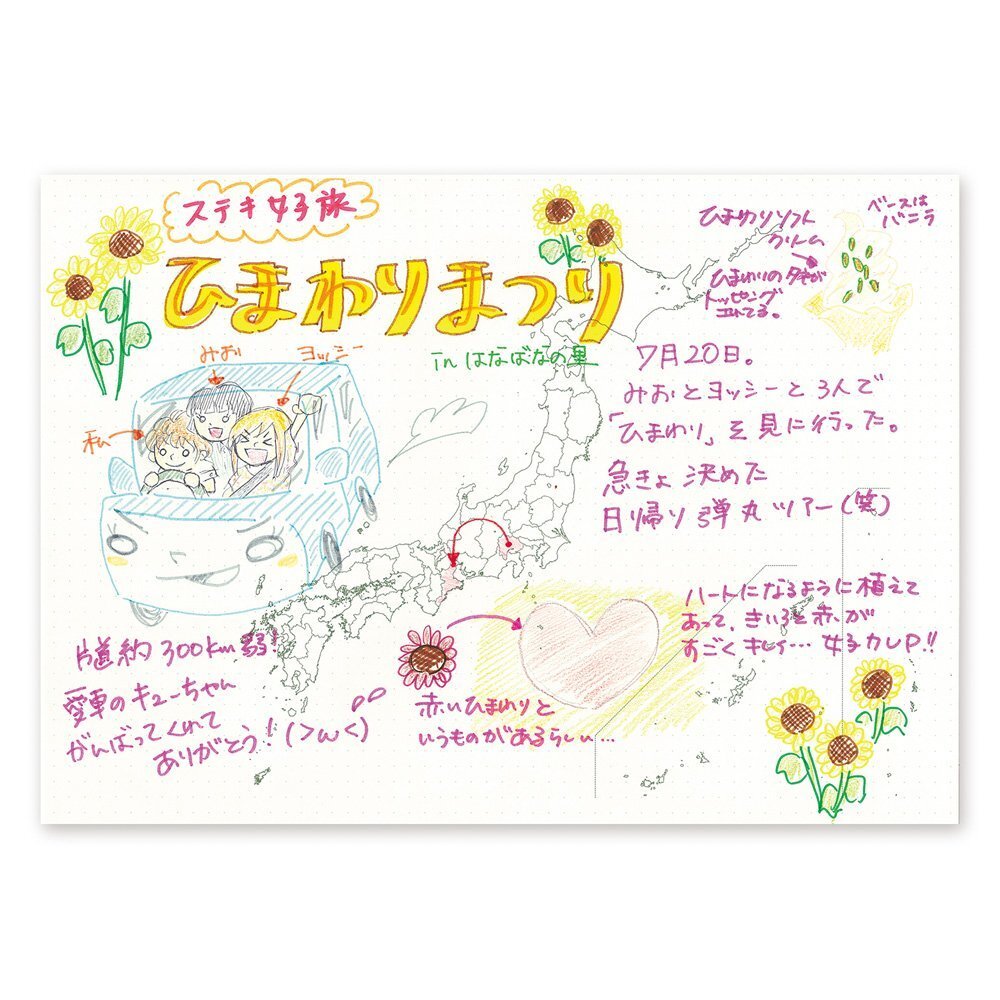 ステキ女子旅
ひまわりまつり
in はなばなの里
みお
ヨッシー
私
ひまわりソフト
クリーム
ベースは
バニラ
ひまわりのタネが
トッピング
されてる。
7月20日。
みおとヨッシーと3人で
「ひまわり」を見に行った。
急きょ決めた
日帰り弾丸ツアー(笑)
ハートになるように植えて
あって、きいろと赤が
すごくキレイ…女子力UP!!
赤いひまわりと
いうものがあるらしい…
片道約300km弱!
愛車のキューちゃん
がんばってくれて
ありがとう!(>ω<)